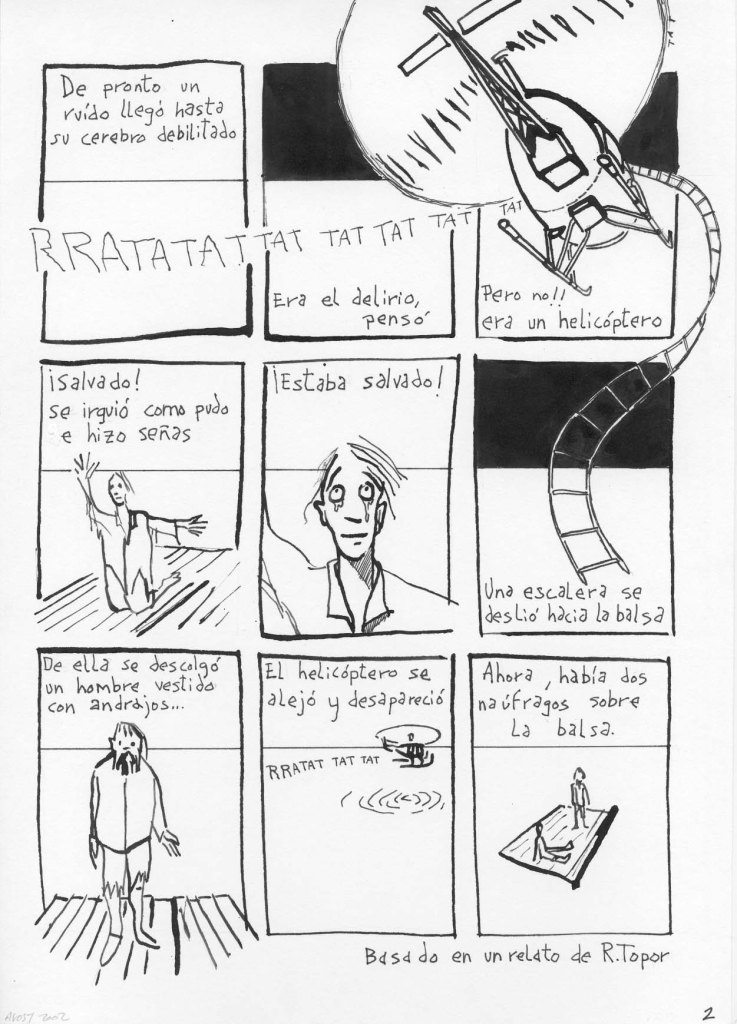 TAT
De pronto un
ruído llegó hasta
su cerebro debilitado
RRATATAT TAT TAT TAT TAT TAT
Era el delirio,
pensó
Pero no!!
era un helicóptero
¡Salvado!
se irguió como pudo
e hizo señas
¡Estaba salvado!
Una escalera se
deslió hacia la balsa
De ella se descolgó
un hombre vestido
con andrajos...
El helicóptero se
alejó y desapareció
RRATAT TAT TAT
Ahora, había dos
naúfragos sobre
la balsa.
Basado en un relato de R.Topor
2002
2